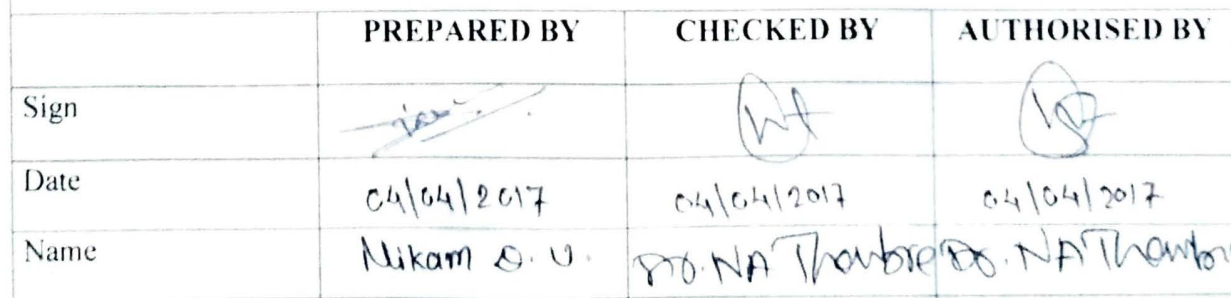 PREPARED BY CHECKED BY AUTHORISED BY
Sign
Date 04/04/2017 04/04/2017 04/04/2017
Name Nikam D. U. Dr. NA Thombre Dr. NA Thombr